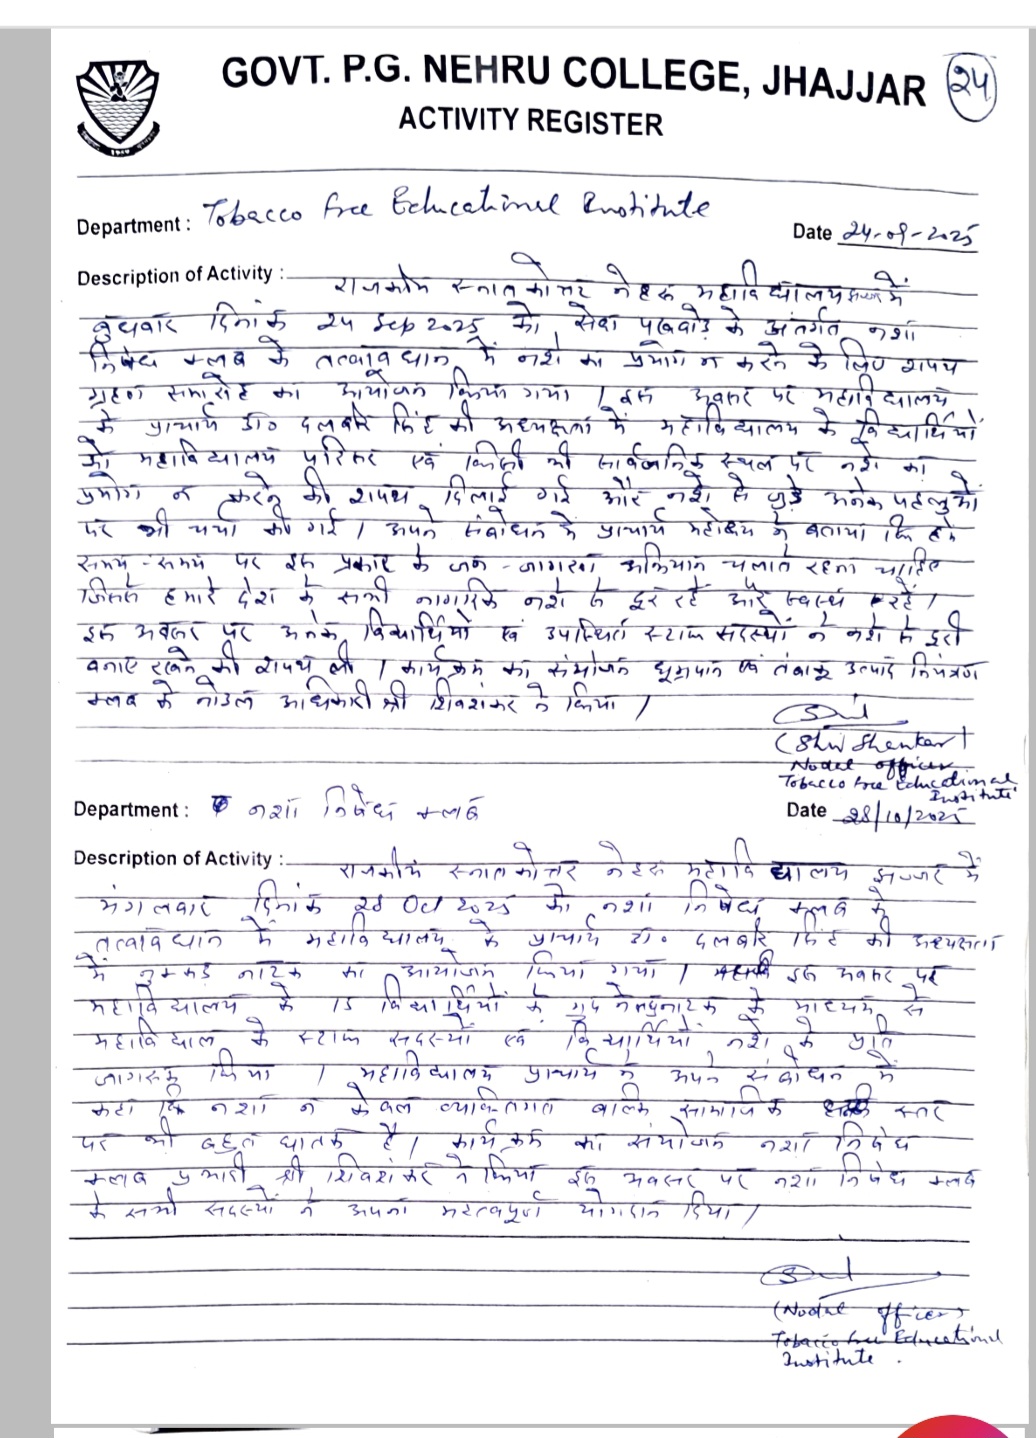 GOVT. P.G. NEHRU COLLEGE, JHAJJAR
24
ACTIVITY REGISTER
Department : Tobacco free Educational Institute
Date 24-09-2025
Description of Activity : राजकीय स्नातकोत्तर नेहरू महाविद्यालय झज्जर में
बुधवार दिनांक 24 Sep 2025 को, सेवा पखवाड़े के अंतर्गत नशा
निषेध क्लब के तत्वावधान में नशे का प्रयोग न करने के लिए शपथ
ग्रहण समारोह का आयोजन किया गया । इस अवसर पर महाविद्यालय
के प्राचार्य डॉ० दलबीर सिंह की अध्यक्षता में महाविद्यालय के विद्यार्थियों
को महाविद्यालय परिसर एवं किसी भी सार्वजनिक स्थल पर नशे का
प्रयोग न करने की शपथ दिलाई गई और नशे से जुड़े अनेक पहलुओं
पर भी चर्चा की गई । अपने संबोधन में प्राचार्य महोदय ने बताया कि हमें
समय-समय पर इस प्रकार के जन-जागरण अभियान चलाते रहना चाहिए
जिससे हमारे देश के सभी नागरिक नशे से दूर रहें और स्वस्थ रहें ।
इस अवसर पर अनेक विद्यार्थियों एवं उपस्थित स्टाफ सदस्यों ने नशे से दूरी
बनाए रखने की शपथ ली । कार्यक्रम का संयोजन धूम्रपान एवं तंबाकू उत्पाद नियंत्रण
क्लब के नोडल अधिकारी श्री शिवशंकर ने किया ।
(Shiv Shankar)
Nodal officer
Tobacco free Educational
Institute
Department : नशा निषेध क्लब
Date 28/10/2025
Description of Activity : राजकीय स्नातकोत्तर नेहरू महाविद्यालय झज्जर में
मंगलवार दिनांक 28 Oct 2025 को नशा निषेध क्लब के
तत्वावधान में महाविद्यालय के प्राचार्य डा० दलबीर सिंह की अध्यक्षता
में नुक्कड़ नाटक का आयोजन किया गया । इस अवसर पर
महाविद्यालय के 15 विद्यार्थियों के ग्रुप ने नाटक के माध्यम से
महाविद्याल के स्टाफ सदस्यों एवं विद्यार्थियों नशे के प्रति
जागरूक किया । महाविद्यालय प्राचार्य ने अपने संबोधन में
कहा कि नशा न केवल व्यक्तिगत बल्कि सामाजिक स्तर
पर भी बहुत घातक है । कार्यक्रम का संयोजन नशा निषेध
क्लब प्रभारी श्री शिवशंकर ने किया इस अवसर पर नशा निषेध क्लब
के सभी सदस्यों ने अपना महत्वपूर्ण योगदान दिया ।
(Nodal officer)
Tobacco free Educational
Institute .